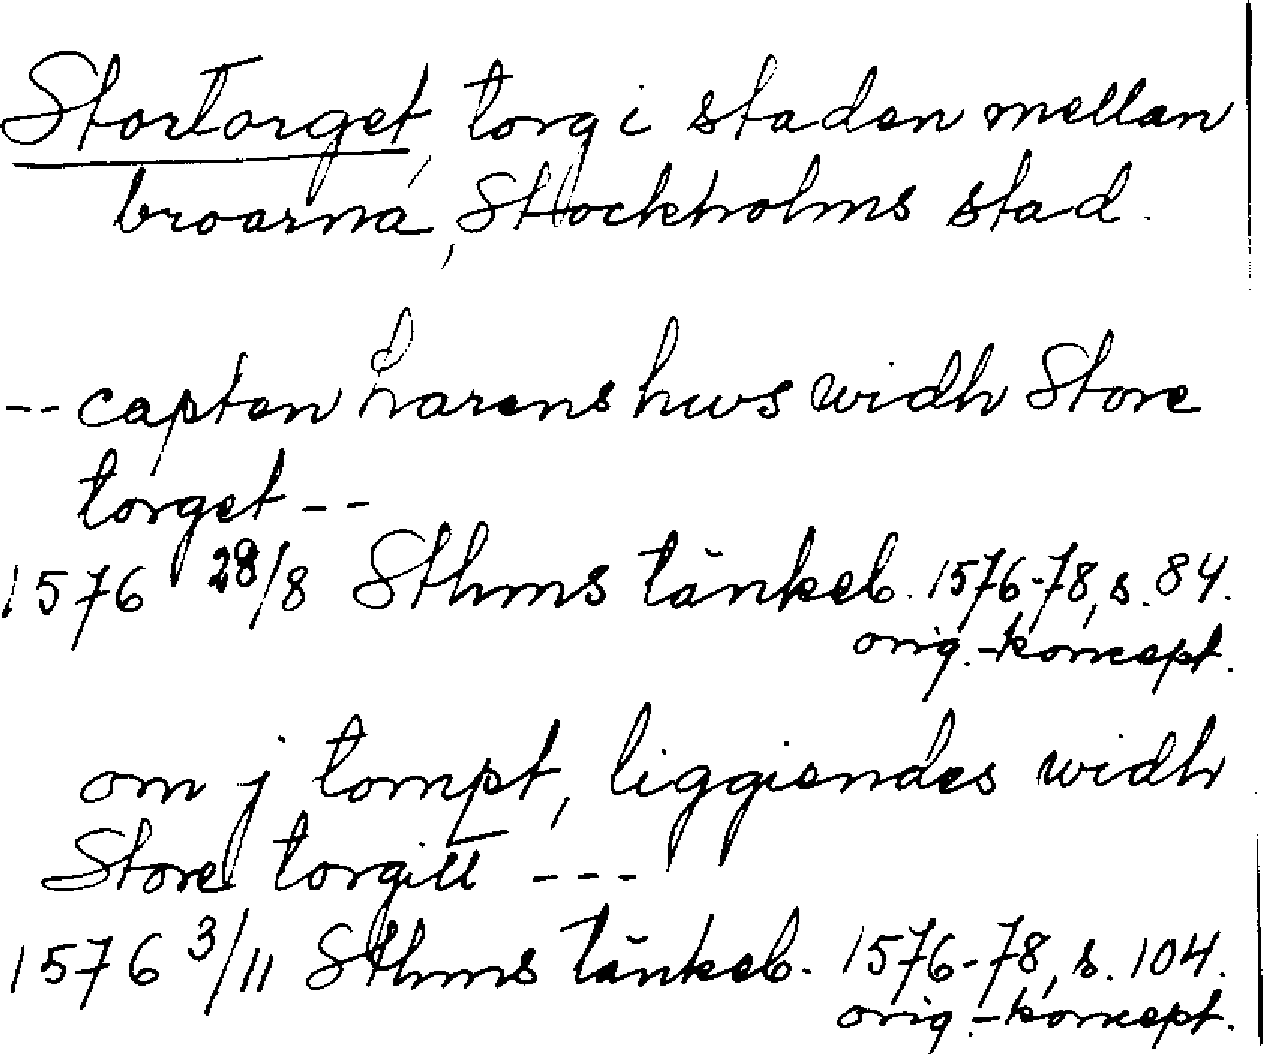 Stortorget, torg i staden mellan
broarna, Stockholms stad.
-- capten harens hws widh Store
torget --
1576 28/8 Sthms tänkeb. 1576-78, s. 84.
orig.-koncept.
om j tompt, liggiendes widh
Store torgitt ---
1576 3/11 Sthms tänkeb. 1576-78, s. 104.
orig.-koncept.